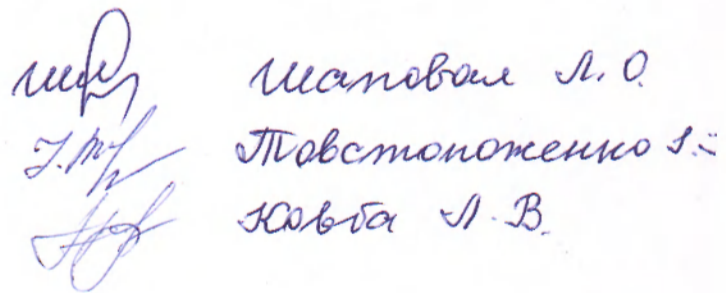 Шаповал Л.О.
Товстопоженко
Ковба Л.В.